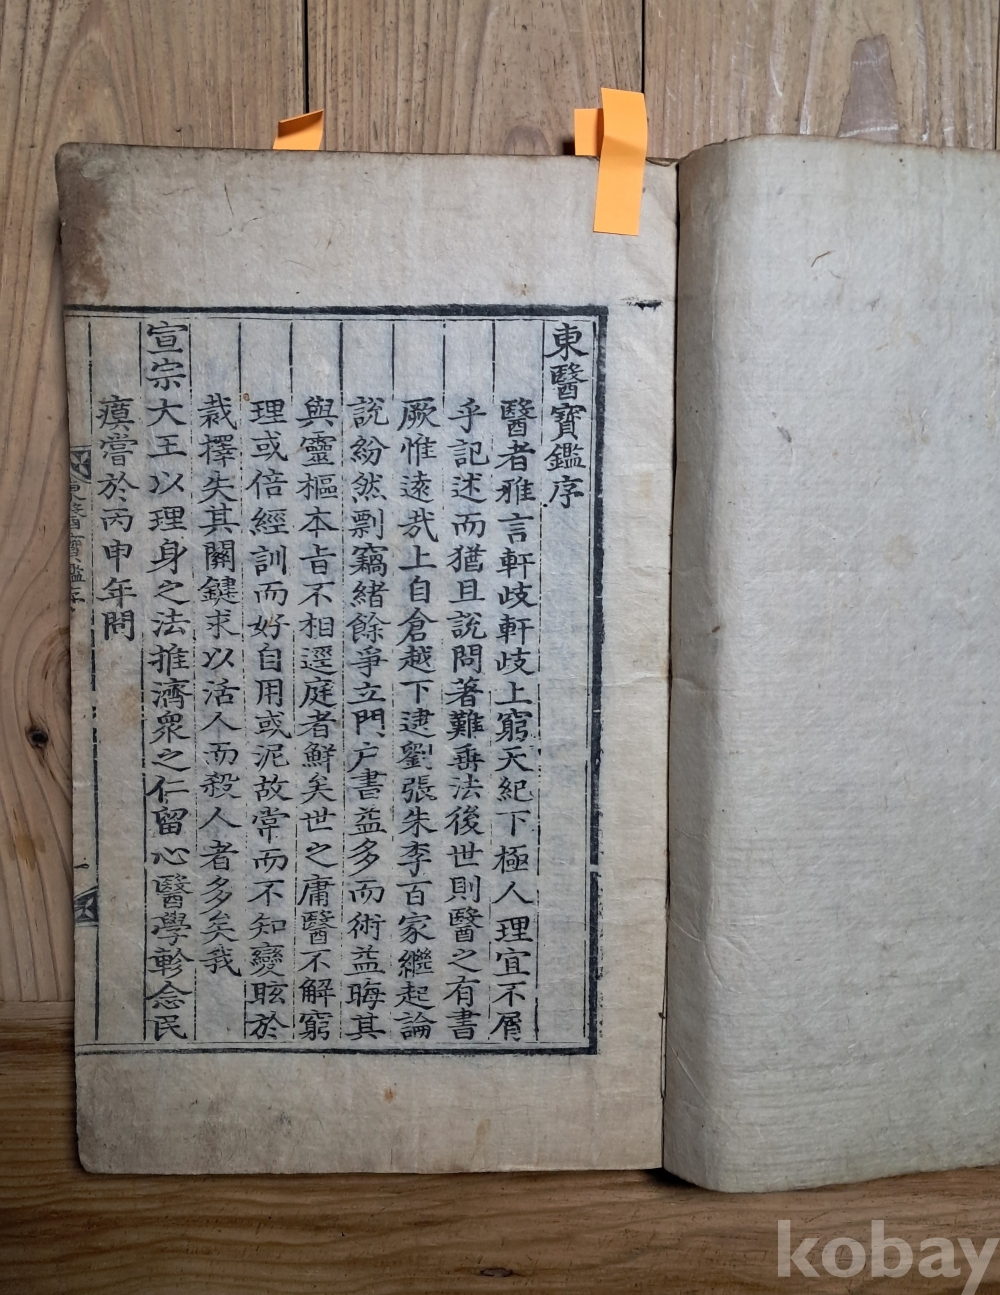 東醫寶鑑序
醫者雅言軒歧軒歧上窮天紀下極人理宜不屑
乎記述而猶且說問著難垂法後世則醫之有書
厥惟遠㢤上自倉越下逮劉張朱李百家繼起論
說紛然剽竊緖餘爭立門户書益多而術益晦其
與靈樞本旨不相逕庭者鮮矣世之庸醫不解窮
理或倍經訓而好自用或泥故常而不知變眩於
裁擇失其關鍵求以活人而殺人者多矣我
宣宗大王以理身之法推濟衆之仁留心醫學軫念民
瘼嘗於丙申年間
東醫寶鑑序
一
kobay